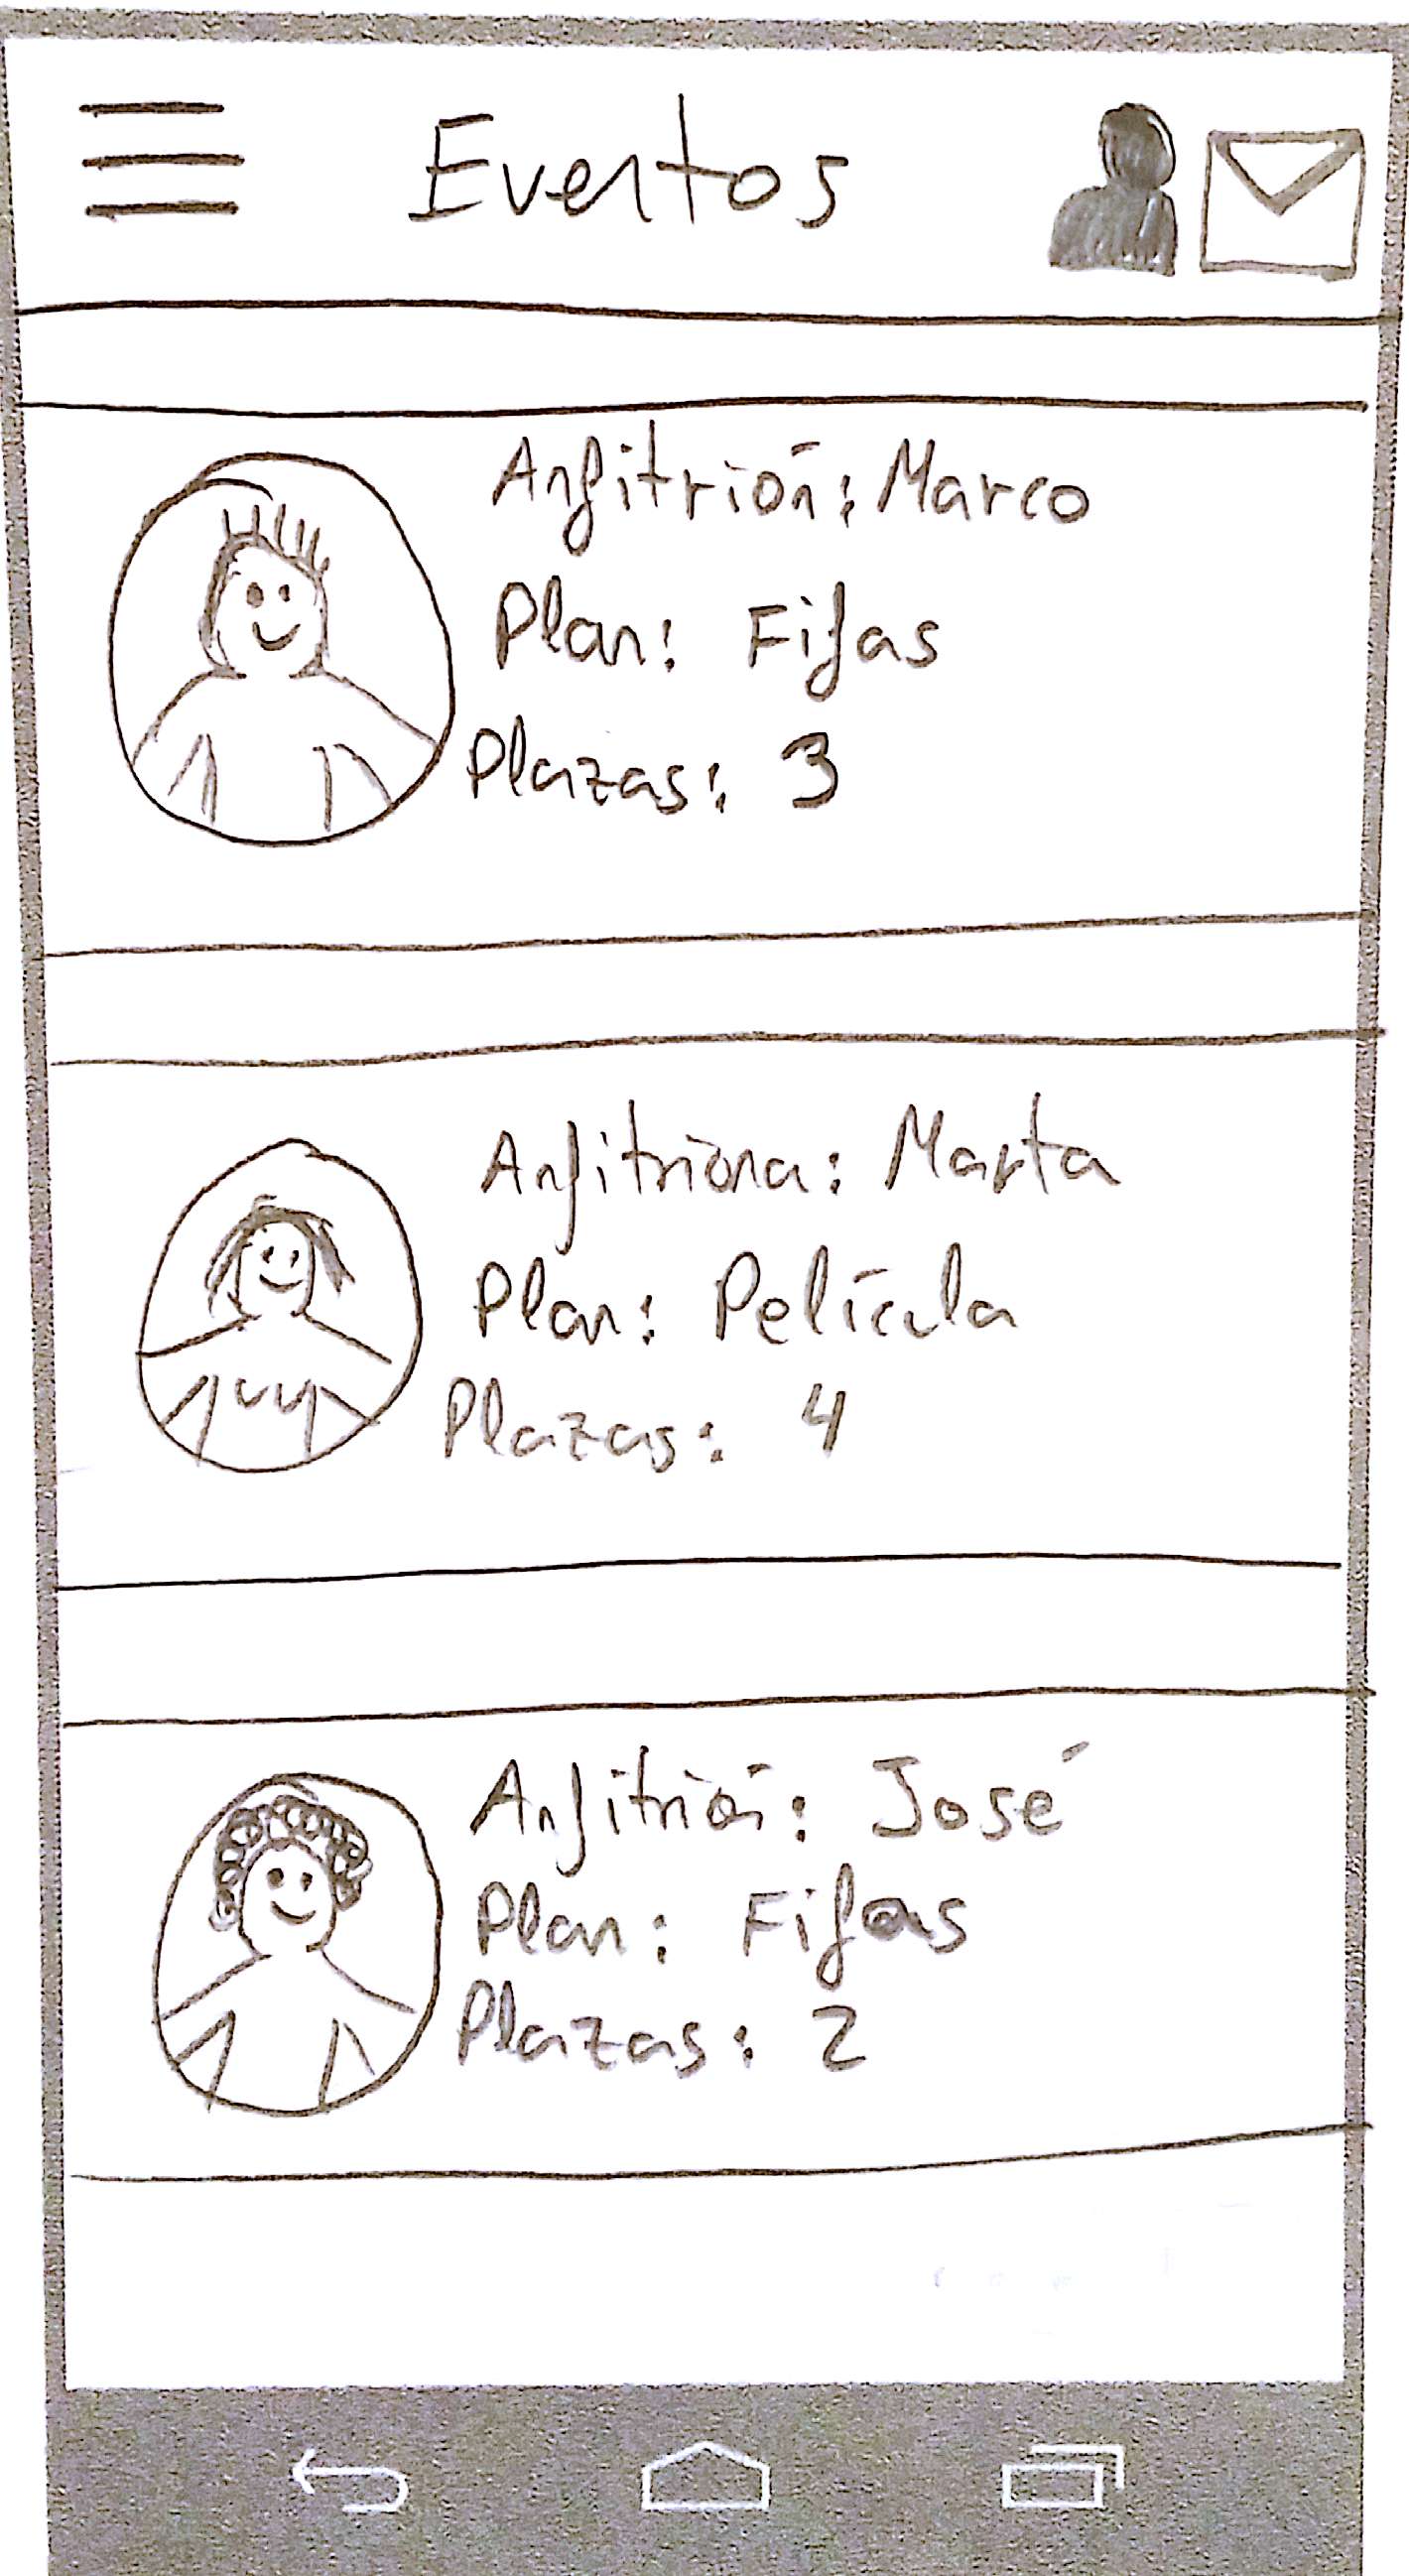 Eventos
Anfitrión: Marco
Plan: Fifas
Plazas: 3
Anfitriona: Marta
Plan: Película
Plazas: 4
Anfitrión: José
Plan: Fifas
Plazas: 2